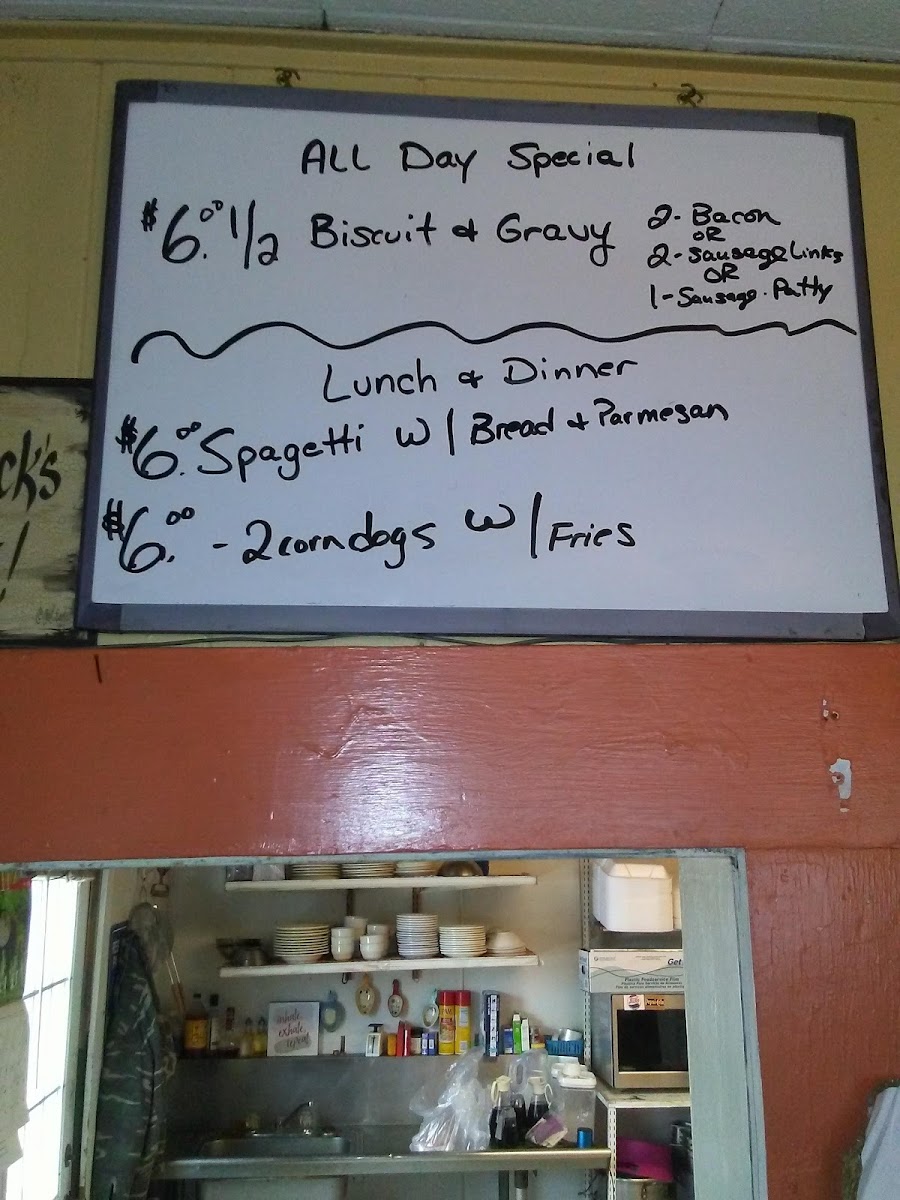 ALL Day Special
$6.00 1/2 Biscuit & Gravy
2- Bacon
OR
2- Sausage Links
OR
1- Sausage. Patty
Lunch & Dinner
$6.00 Spagetti w/ Bread & Parmesan
$6.00 - 2 corn dogs w/ Fries
ck's
!
inhale
exhale
repeat
Get